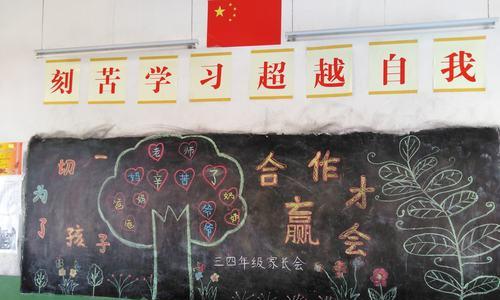 刻苦学习超越自我
一切为了孩子
老师
妈
辛苦了
奶奶
爷爷
合作才会赢
三四年级家长会